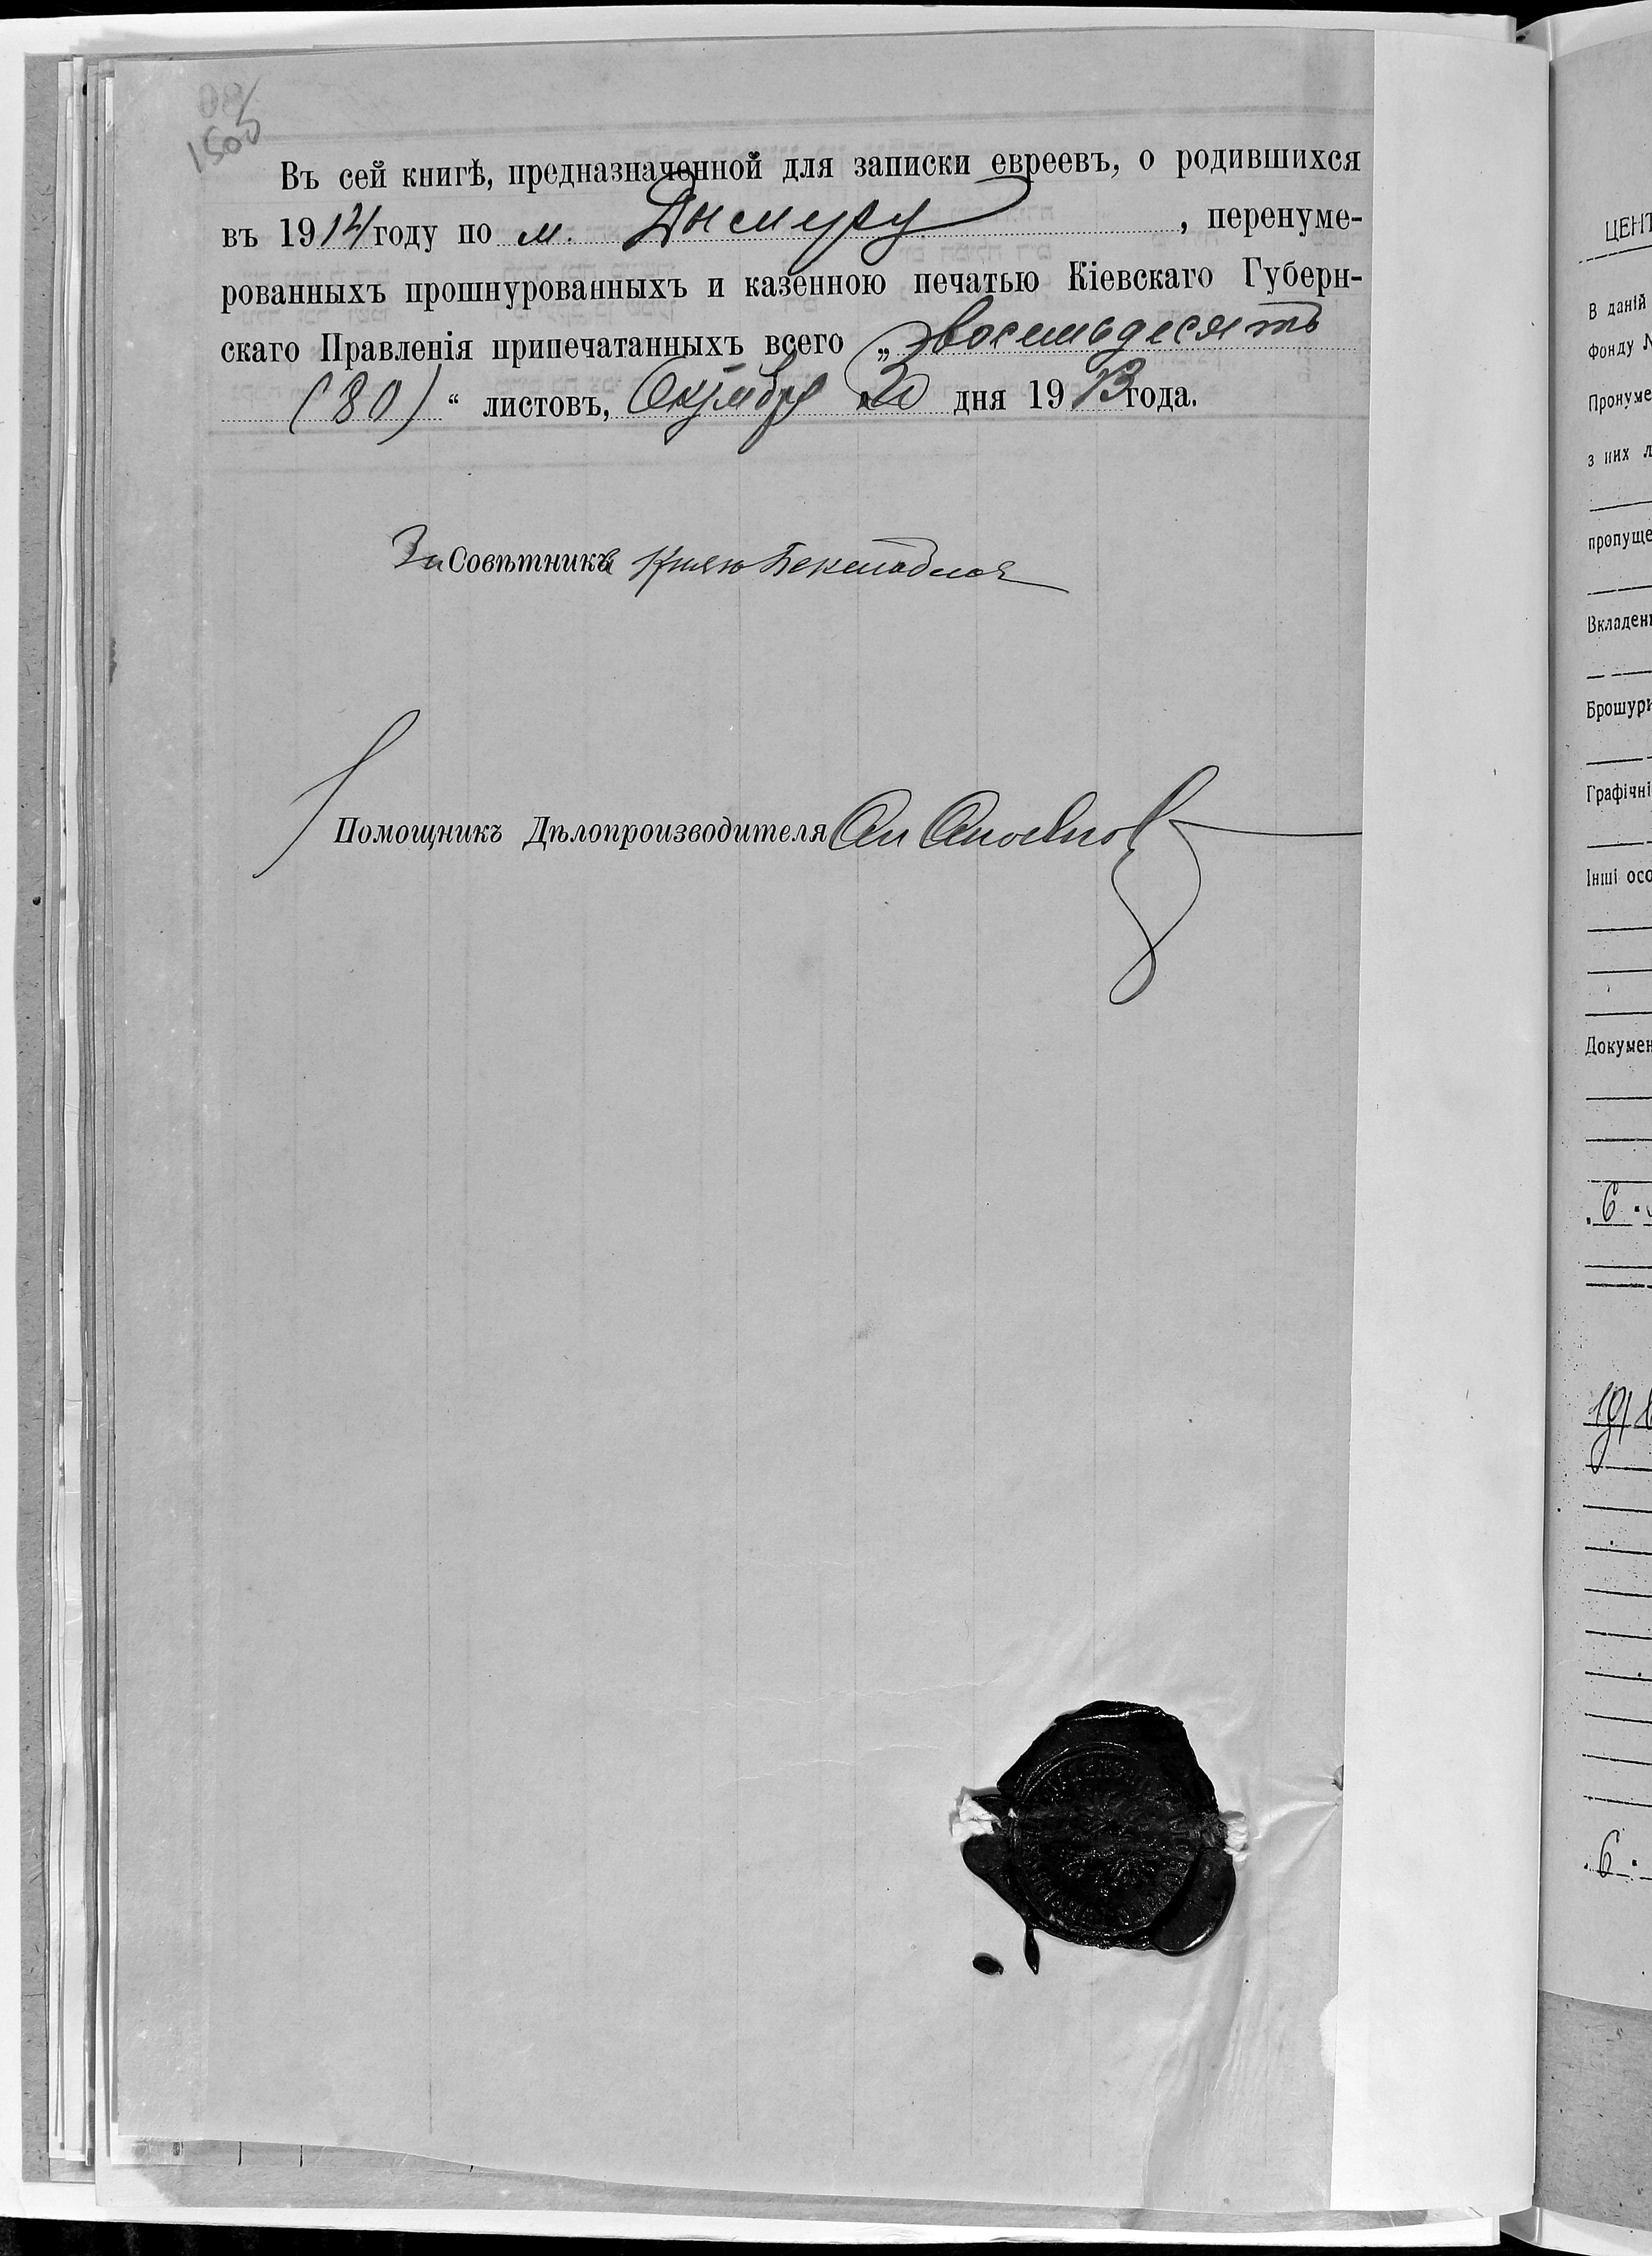 80
1500
Въ сей книгѣ, предназначенной для записки евреевъ, о родившихся
въ 1914 году по м. Дымеру, перенуме-
рованныхъ прошнурованныхъ и казенною печатью Кіевскаго Губерн-
скаго Правленія припечатанныхъ всего „восемьдесятъ
(80)“ листовъ, Октября 30 дня 1913 года.
За Совѣтника
Помощникъ Дѣлопроизводителя
ЦЕНТ
В даній
фонду №
Пронуме
з них л
пропуще
Вкладен
Брошури
Графічні
Інші осо
Докумен
6
191
6